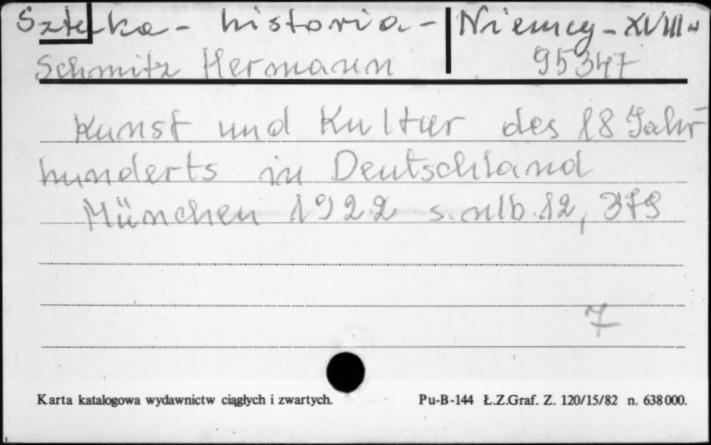 Sztuka - historia - Niemcy - XVIII w
Schmitz Hermann 95347
Kunst und Kultur des 18 Jahr-
hunderts in Deutschland
München 1922 s. nlb. 12, 379
7
Karta katalogowa wydawnictw ciągłych i zwartych. Pu-B-144 Ł.Z.Graf. Z. 120/15/82 n. 638000.